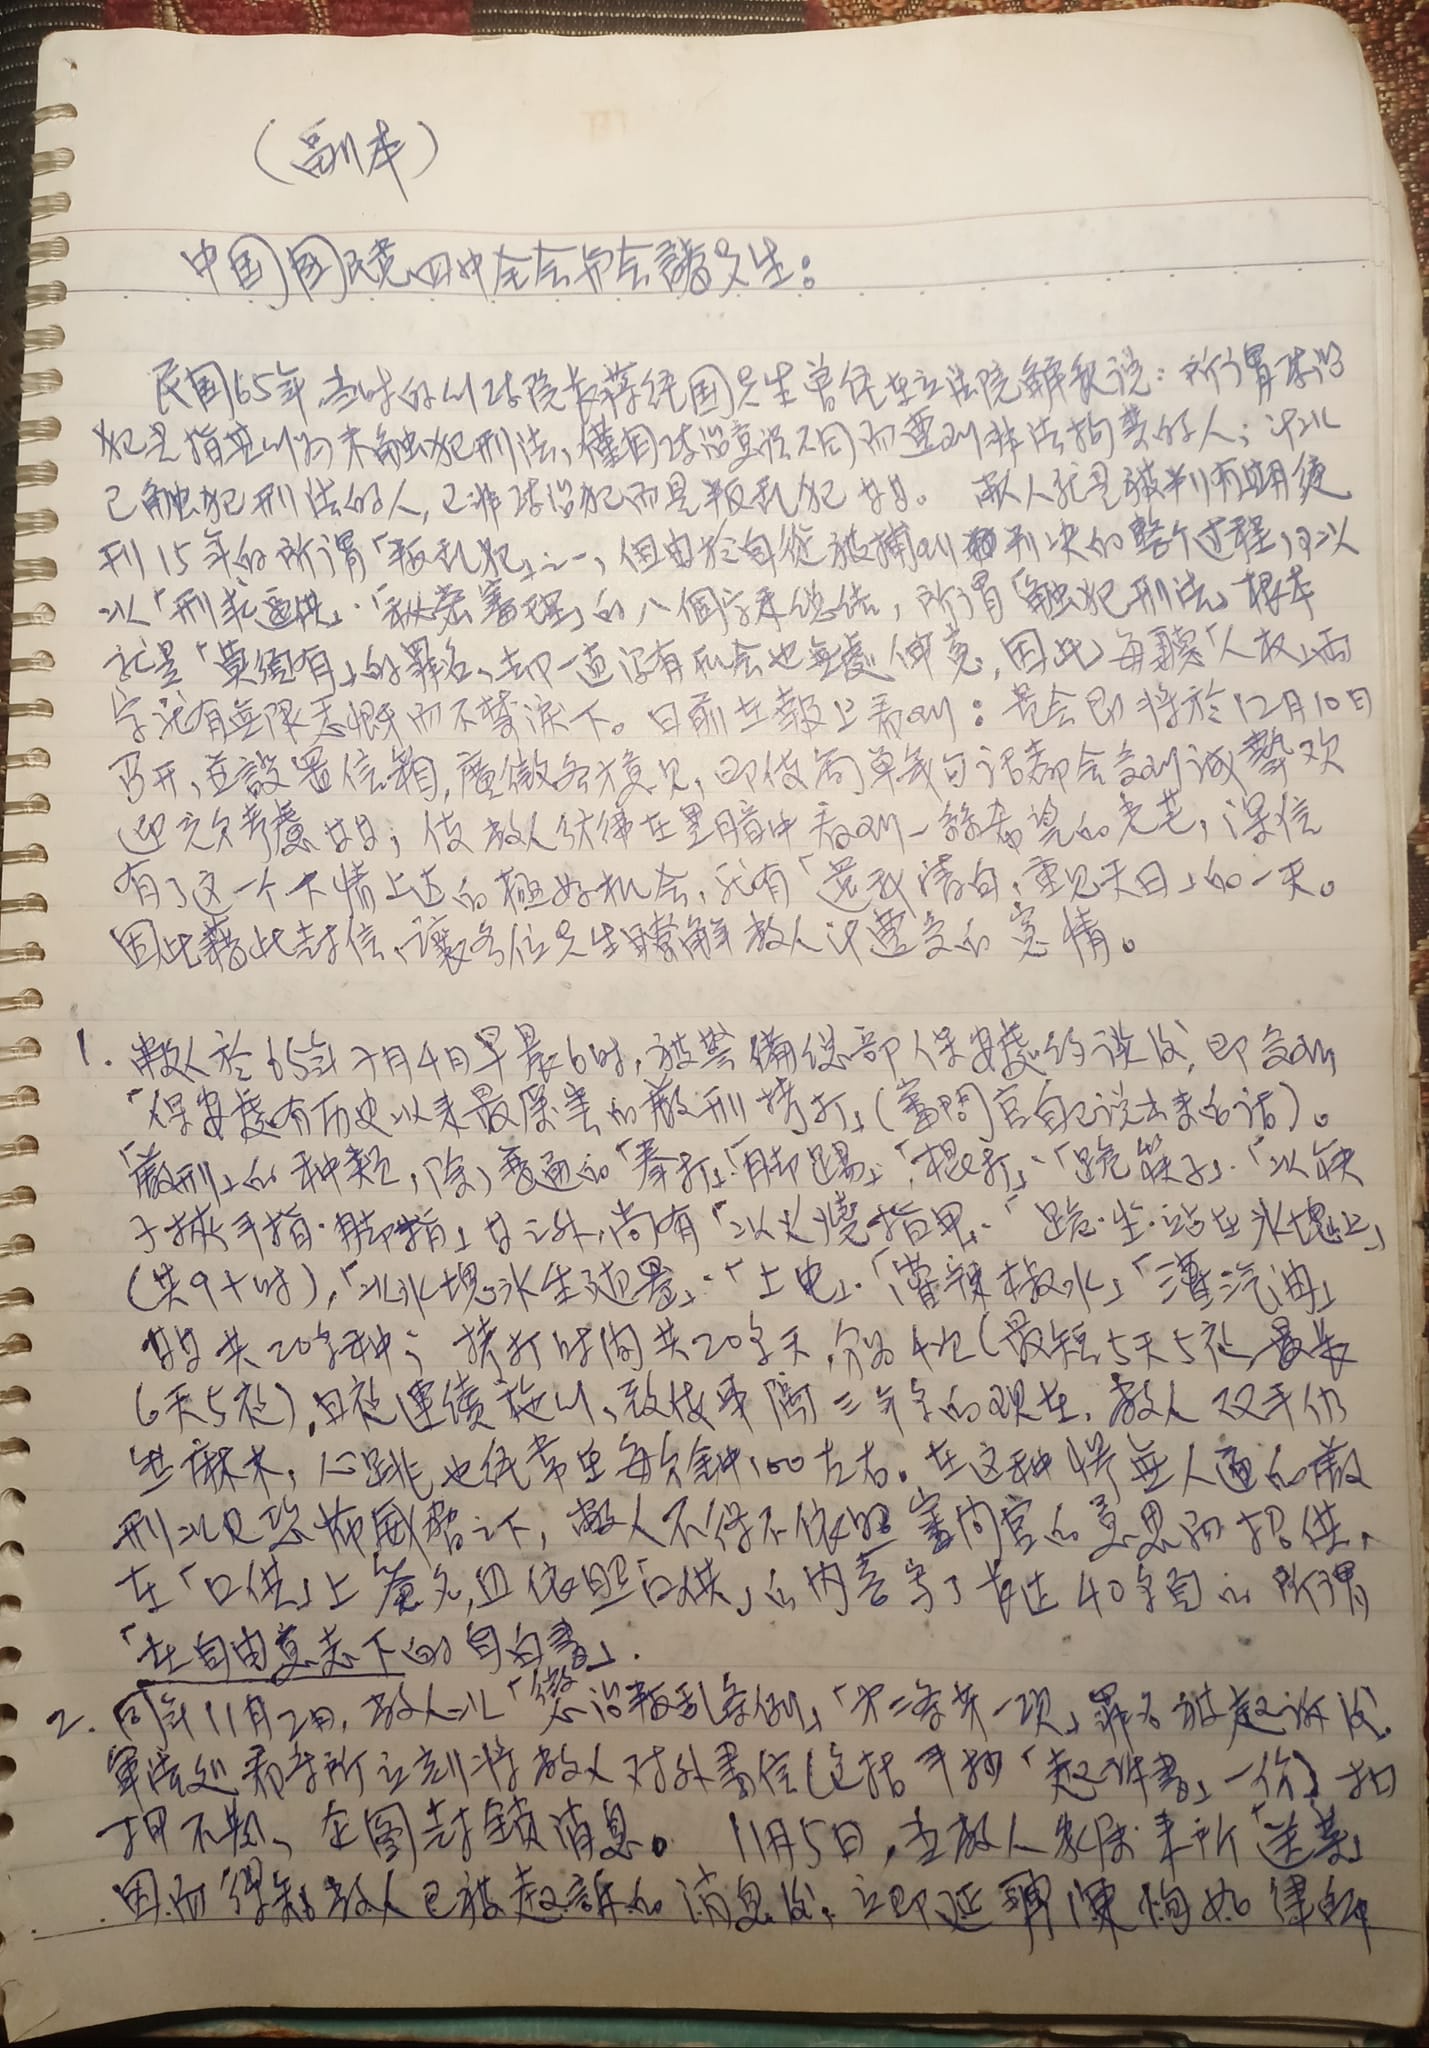 （副本）
中国國民党四中全会与会諸先生：
民国65年，当时的行政院長蒋经国先生曾经在立法院解釈说：所谓政治
犯是指其行为未触犯刑法，僅因政治意识不同而遭到非法拘禁的人；所以
已触犯刑法的人，已非政治犯而是叛乱犯等等。 敝人就是被判有期徒
刑15年的所谓「叛乱犯」之一，但由於自從被捕到判决的整个过程，可以
以「刑求逼供」、「秘密審理」的八個字来总结，所谓「触犯刑法」根本
就是「莫须有」的罪名，却一直没有机会也無處伸寃，因此，每聽「人权」两
字就有無限感慨而不禁淚下。日前在報上看到：貴会即将於12月10日
召开，并設置信箱，廣徵各方意见，即使简单幾句话都会受到诚摯欢
迎充分考慮等等；使敝人彷彿在黑暗中看到一絲希望的光芒，深信
有了这一个下情上达的極好机会，就有「還我清白，重见天日」的一天。
因此藉此封信，讓各位先生瞭解敝人所遭受的寃情。
1. 敝人於65年7月4日早晨6时，被警備总部保安處约谈後，即受到
「保安處有历史以来最厲害的嚴刑拷打」（審問官自己说出来的话）。
「嚴刑」的种類，除，普通的「拳打」「脚踢」、「棍打」、「跪筷子」、「以筷
子挾手指·脚指」等之外，尚有「以火燒指甲」、「跪·坐·站在氷塊上」
（共9十时），「以氷塊氷生殖器」、「上电」、「灌辣椒水」「灌汽油」
等等共20多种；拷打时间共20多天，分为4次（最短5天5夜，最長
6天5夜），日夜連續施行，致使事隔三年多的现在，敝人双手仍
然麻木，心跳也经常在每分鐘100左右。在这种慘無人道的嚴
刑以及恐怖威脅之下，敝人不得不依照審问官的意思而招供，
在「口供」上簽名，且依照「口供」的内容写了長达40多頁的所谓
「在自由意志下的自白書」。
2. 同年11月2日，敝人以「懲治叛乱条例」「第二条第一项」罪名被起诉後，
軍法处看守所立刻将敝人对外書信（包括手抄「起诉書」一份）扣
押不郵，企圖封鎖消息。 11月5日，当敝人家属来所「送菜」
因而得知敝人已被起訴的消息後，立即延聘陳恂如律師